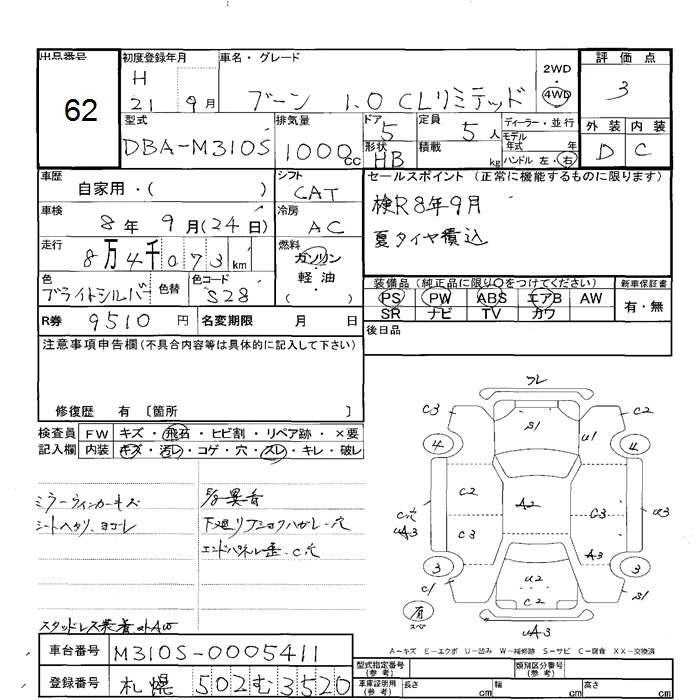 出品番号 初度登録年月 車名・グレード 評価点
62
H 21 9月 ブーン 1.0 CLリミテッド 2WD 4WD 3
外装 内装
D C
型式 排気量 ドア 定員 ディーラー・並行
DBA-M310S 1000cc 5 5人 モデル年式 年
形状 積載 ハンドル 左・右
HB kg
車歴 シフト セールスポイント (正常に機能するものに限ります)
自家用・( ) CAT
検R8年9月
夏タイヤ積込
車検 冷房
8年 9月(24日) AC
走行 燃料
8万4千073km ガソリン 軽油 ( )
色 色替 色コード
ブライトシルバー S28
装備品 (純正品に限り○をつけてください) 新車保証書
PS PW ABS エアB AW 有・無
SR ナビ TV カワ
R券 9510円 名変期限 月 日
後日品
注意事項申告欄(不具合内容等は具体的に記入して下さい)
修復歴 有 〔箇所 〕
検査員 FW キズ・飛石・ヒビ割・リペア跡・×要
記入欄 内装 キズ・汚レ・コゲ・穴・スレ・キレ・破レ
ミラーウィンカーキズ
シートヘタリ、ヨゴレ
異音
下廻リフショクハガレ・穴
エンドパネル歪・C穴
スタッドレス装着
フレ
C3 S1 C2
4 U1 4
C2
C穴 A2 C3 U3
UA3 C3
A3
3 U2 3
C1 C2 S1
有 スペア
UA3
A-キズ E-エクボ U-凹み W-補修跡 S-サビ C-腐食 XX-交換済
車台番号 M310S-0005411
型式指定番号(参考) 類別区分番号(参考)
登録番号 札幌 502 む 3520
車庫証明用(参考) 長さ cm 幅 cm 高さ cm